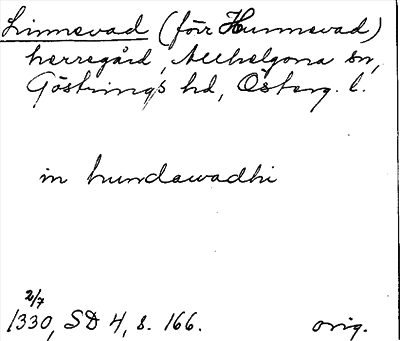 Linnevad (förr Hunnevad)
herregård, Allhelgona sn,
Göstrings hd, Österg. l.
in hundawadhi
2/7
1330, SD 4, s. 166. orig.